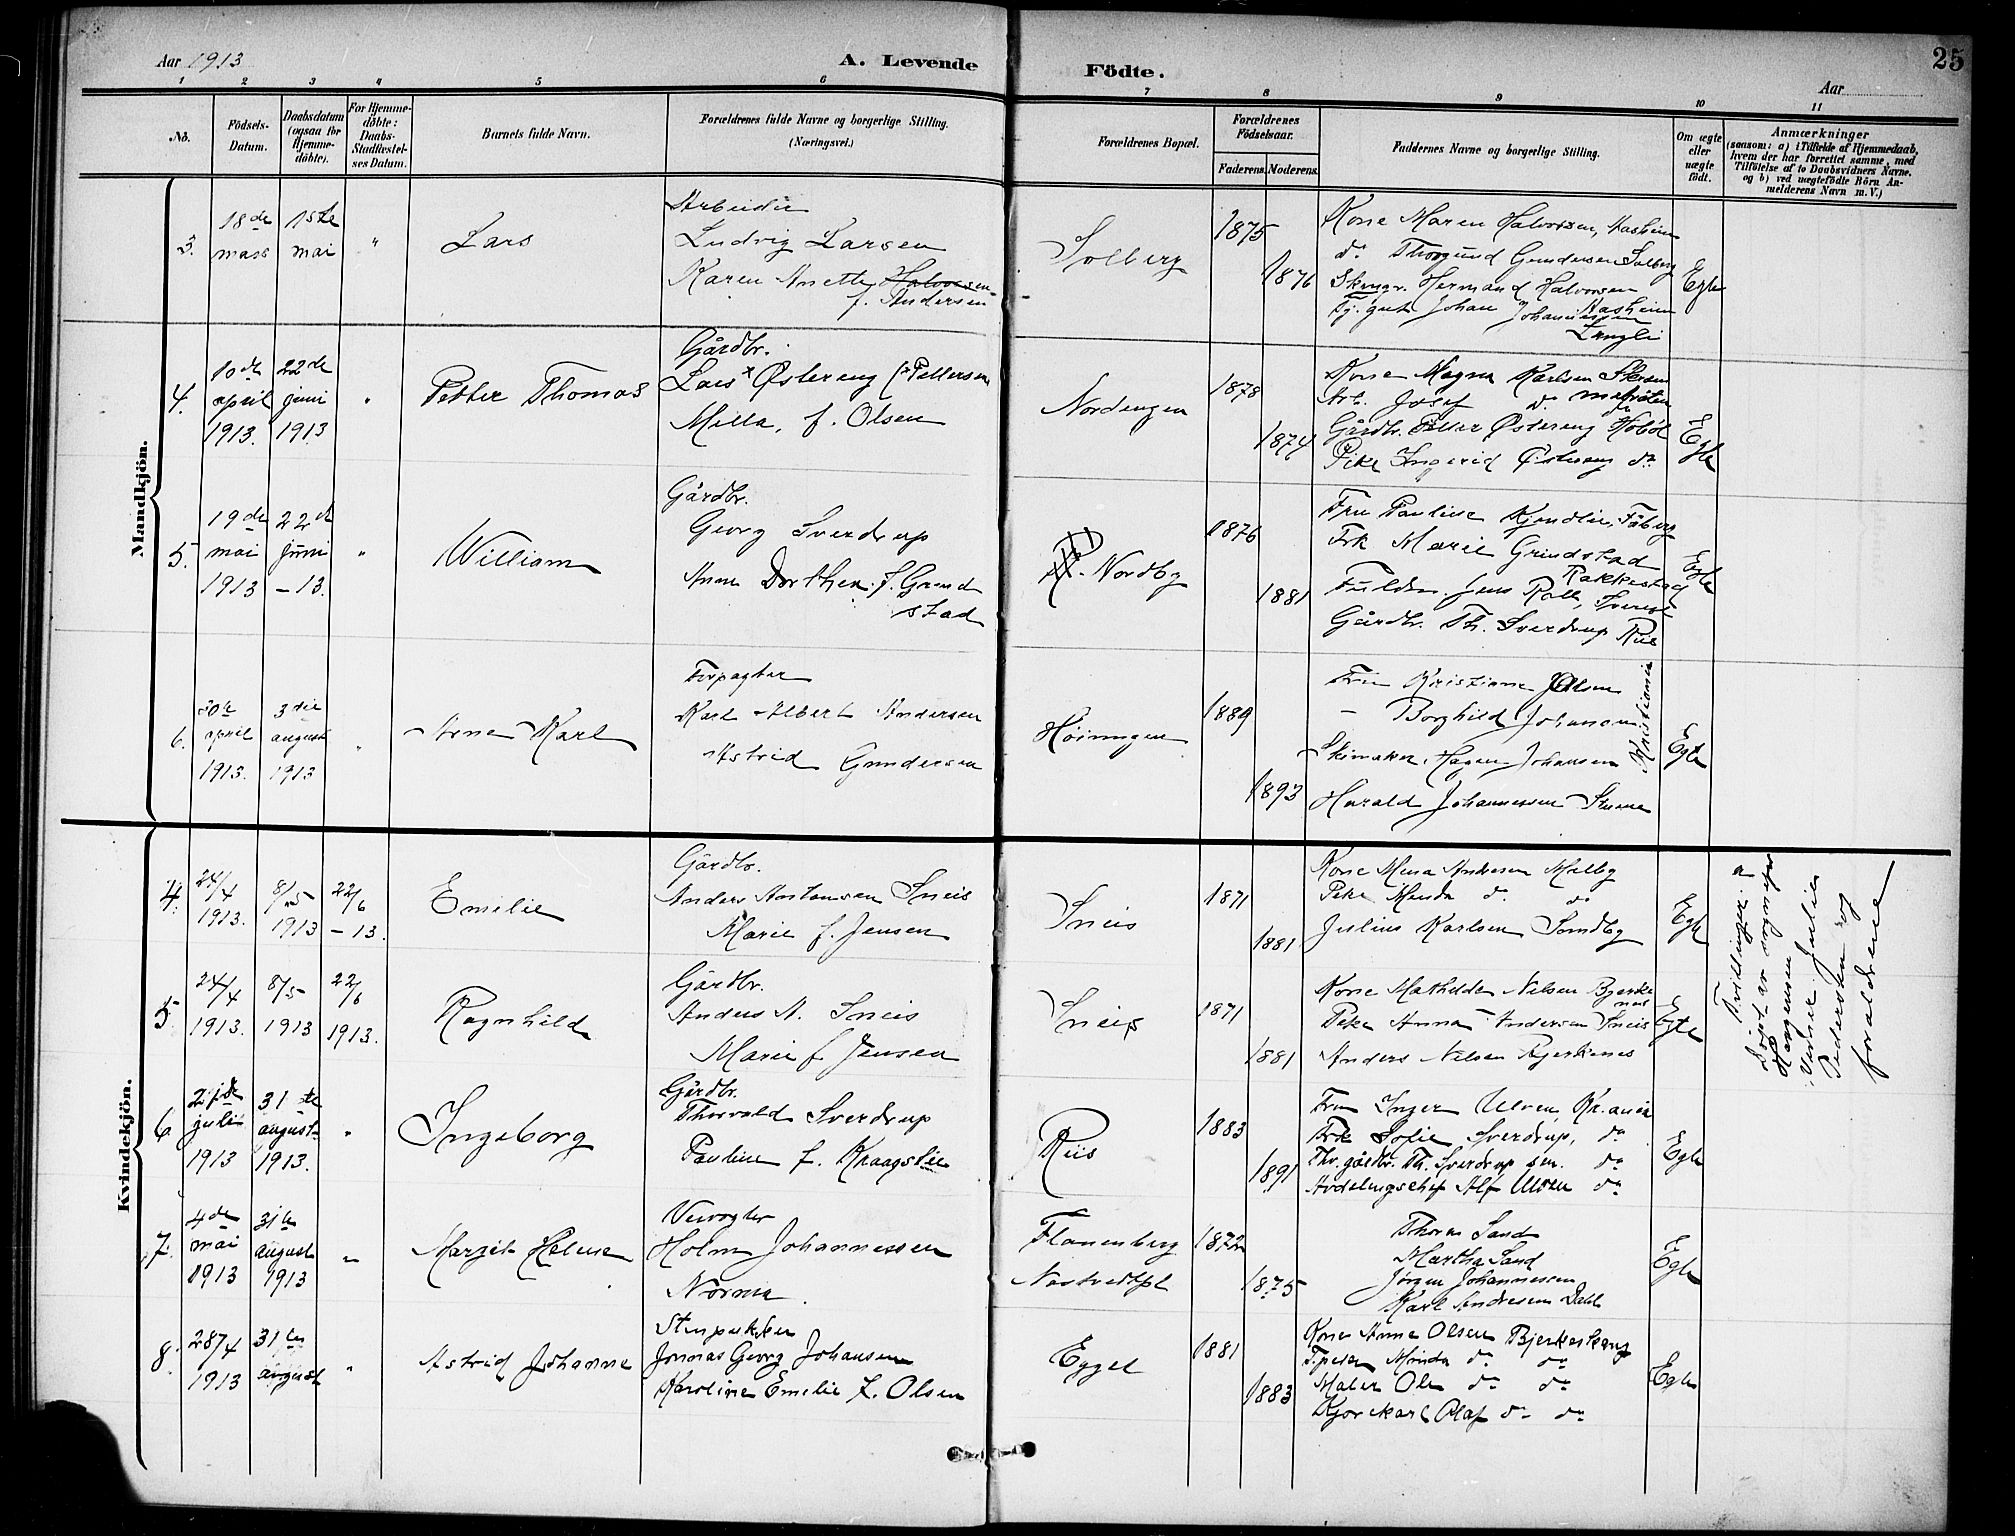 Aar 1913
A. Levende
Födte.
Aar
25
1 2 3 4 5 6 7 8 9 10 11
No.
Födsels-
Datum.
Daabsdatum
(ogsaa for
Hjemme-
döbte).
For Hjemme-
döbte:
Daabs-
Stadfæstel-
ses Datum.
Barnets fulde Navn.
Forældrenes fulde Navne og borgerlige Stilling.
(Næringsvei.)
Forældrenes Bopæl.
Forældrenes
Födselsaar.
Faderens. Moderens.
Faddernes Navne og borgerlige Stilling.
Om ægte
eller
uægte
födt.
Anmærkninger
(saasom: a) i Tilfælde af Hjemmedaab,
hvem der har forrettet samme, med
Tilföielse af to Daabsvidners Navne.
og b) ved uægtefödte Börn An-
melderens Navn m. V.)
Mandkjön.
3.
18de
mars
1ste
mai
"
Lars
Arbeider
Ludvig Larsen
Karen Anette Halvorsen
f. Andersen
Solberg
1875
1876
Kone Maren Halvorsen, Aasheim
do Thorgund Gundersen Solberg
Herman Halvorsen
Aasheim
Tj. gut Johan Johannessen
Langli
Egte
4.
10de
april
1913.
22de
juni
1913
"
Petter Thomas
Gårdbr.
Lars x Østereng (x Pettersen
Milla, f. Olsen
Nordengen
1878
1874
Kone Magna Karlsen
Arb. Josef do. do
Gårdbr. Petter Østereng Hobøl
Pike Ingerid Østereng do
Egte
5.
19de
mai
1913
22de
juni
– 13.
"
William
Gårdbr.
Georg Sverdrup
Anna Dorthea f. Grind
stad
Nordby
1876
1881
Fru Pauline Kjendlie, Fåberg
Frk Marie Grindstad
Rakkestad
Jens
Gårdbr. Th. Sverdrup Riis
Egte
6.
april
1913.
3die
august
1913
"
Arne Karl
Forpagter
Karl Albert Andersen
Astrid Gundersen
Høiungen
1889
1893
Fru Kristiane Olsen
– Borghild Johansen
Skimaker Hagen Johansen
Kristiania
Harald Johannessen
Egte
Kvindekjön.
4.
24/4
1913.
8/5
1913
22/6
– 13.
Emelie
Gårdbr.
Anders Antonsen Sneis
Marie f. Jensen
Sneis
1871
1881
Kone Mina Andersen Melby
Pike Menda do. do
Julius Karlsen Sondby
Egte
Tvillinger. a
døpt av sognepr
Hargensen
Vidner: Julie
Pedersen og
forældrene
5.
24/4
1913.
8/5
1913
22/6
1913.
Ragnhild
Gårdbr.
Anders A. Sneis
Marie f Jensen
Sneis
1871
1881
Kone Mathilde Nilsen Bjerke
nes
Pike Anna Andersen Sneis
Anders Nilsen Bjerkenes
Egte
6
juli
1913
31te
august
1913.
"
Ingeborg
Gårdbr.
Thorvald Sverdrup
Pauline f. Kraagslie
Riis
1883
1891
Fru Inger Ulven, Kr.ania
Frk Sofie Sverdrup, do
Fhv. gårdbr. Th. Sverdrup sen. do
Avdelingschef Alf Ulven do
Egte
7.
4de
mai
1913
31te
august
1913
"
Margit Helene
Veivogter
Holm Johannessen
Norma
Flanenberg
Nastvedtpl
1872
1875
Thora Sand
Martha Sand
Jørgen Johannessen
Karl Andresen Dahl
Egte
8.
28/4
1913
31te
august
"
Astrid Johanne
Jonnas Georg Johansen
Karoline Emelie f. Olsen
Eggel
1881
1883
Kone Anna Olsen Bjerkeskaug
T.pike Minda do do
Maler Ole do do
Kjørekarl Olaf do do
Egte